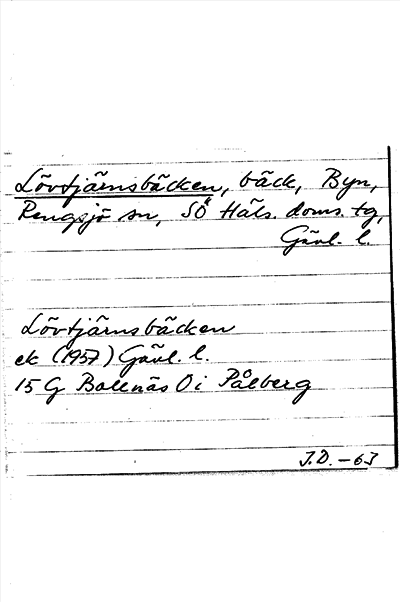 Lövtjärnsbäcken, bäck, Byn,
Rengsjö sn, SÖ Häls. doms. tg,
Gävl. l.
Lövtjärnsbäcken
ek (1957) Gävl. l.
15 G Bollnäs O i Pålberg
J.D. – 63